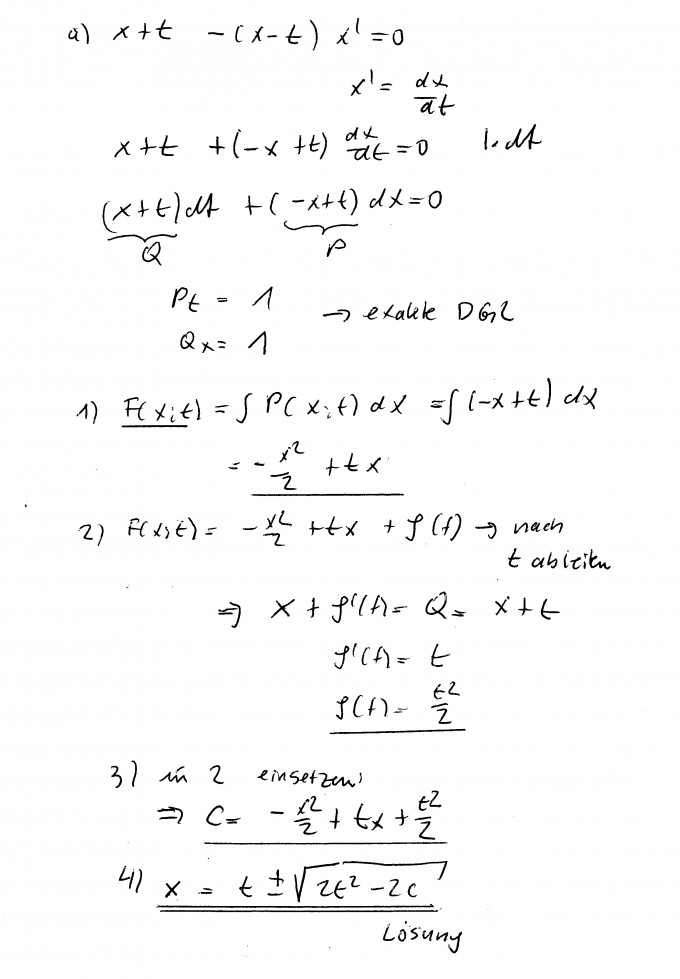 a) x+t - (x-t) x' = 0
x' = dx/dt
x+t + (-x+t) dx/dt = 0 |·dt
(x+t) dt + (-x+t) dx = 0
Q P
Pt = 1
→ exakte DGL
Qx = 1
1) F(x;t) = ∫ P(x;t) dx = ∫ (-x+t) dx
= - x²/2 + tx
2) F(x;t) = - x²/2 + tx + φ(t) → nach
t ableiten
⇒ x + φ'(t) = Q = x+t
φ'(t) = t
φ(t) = t²/2
3) in 2 einsetzen:
⇒ C = - x²/2 + tx + t²/2
4) x = t ± √(2t² - 2c)
Lösung